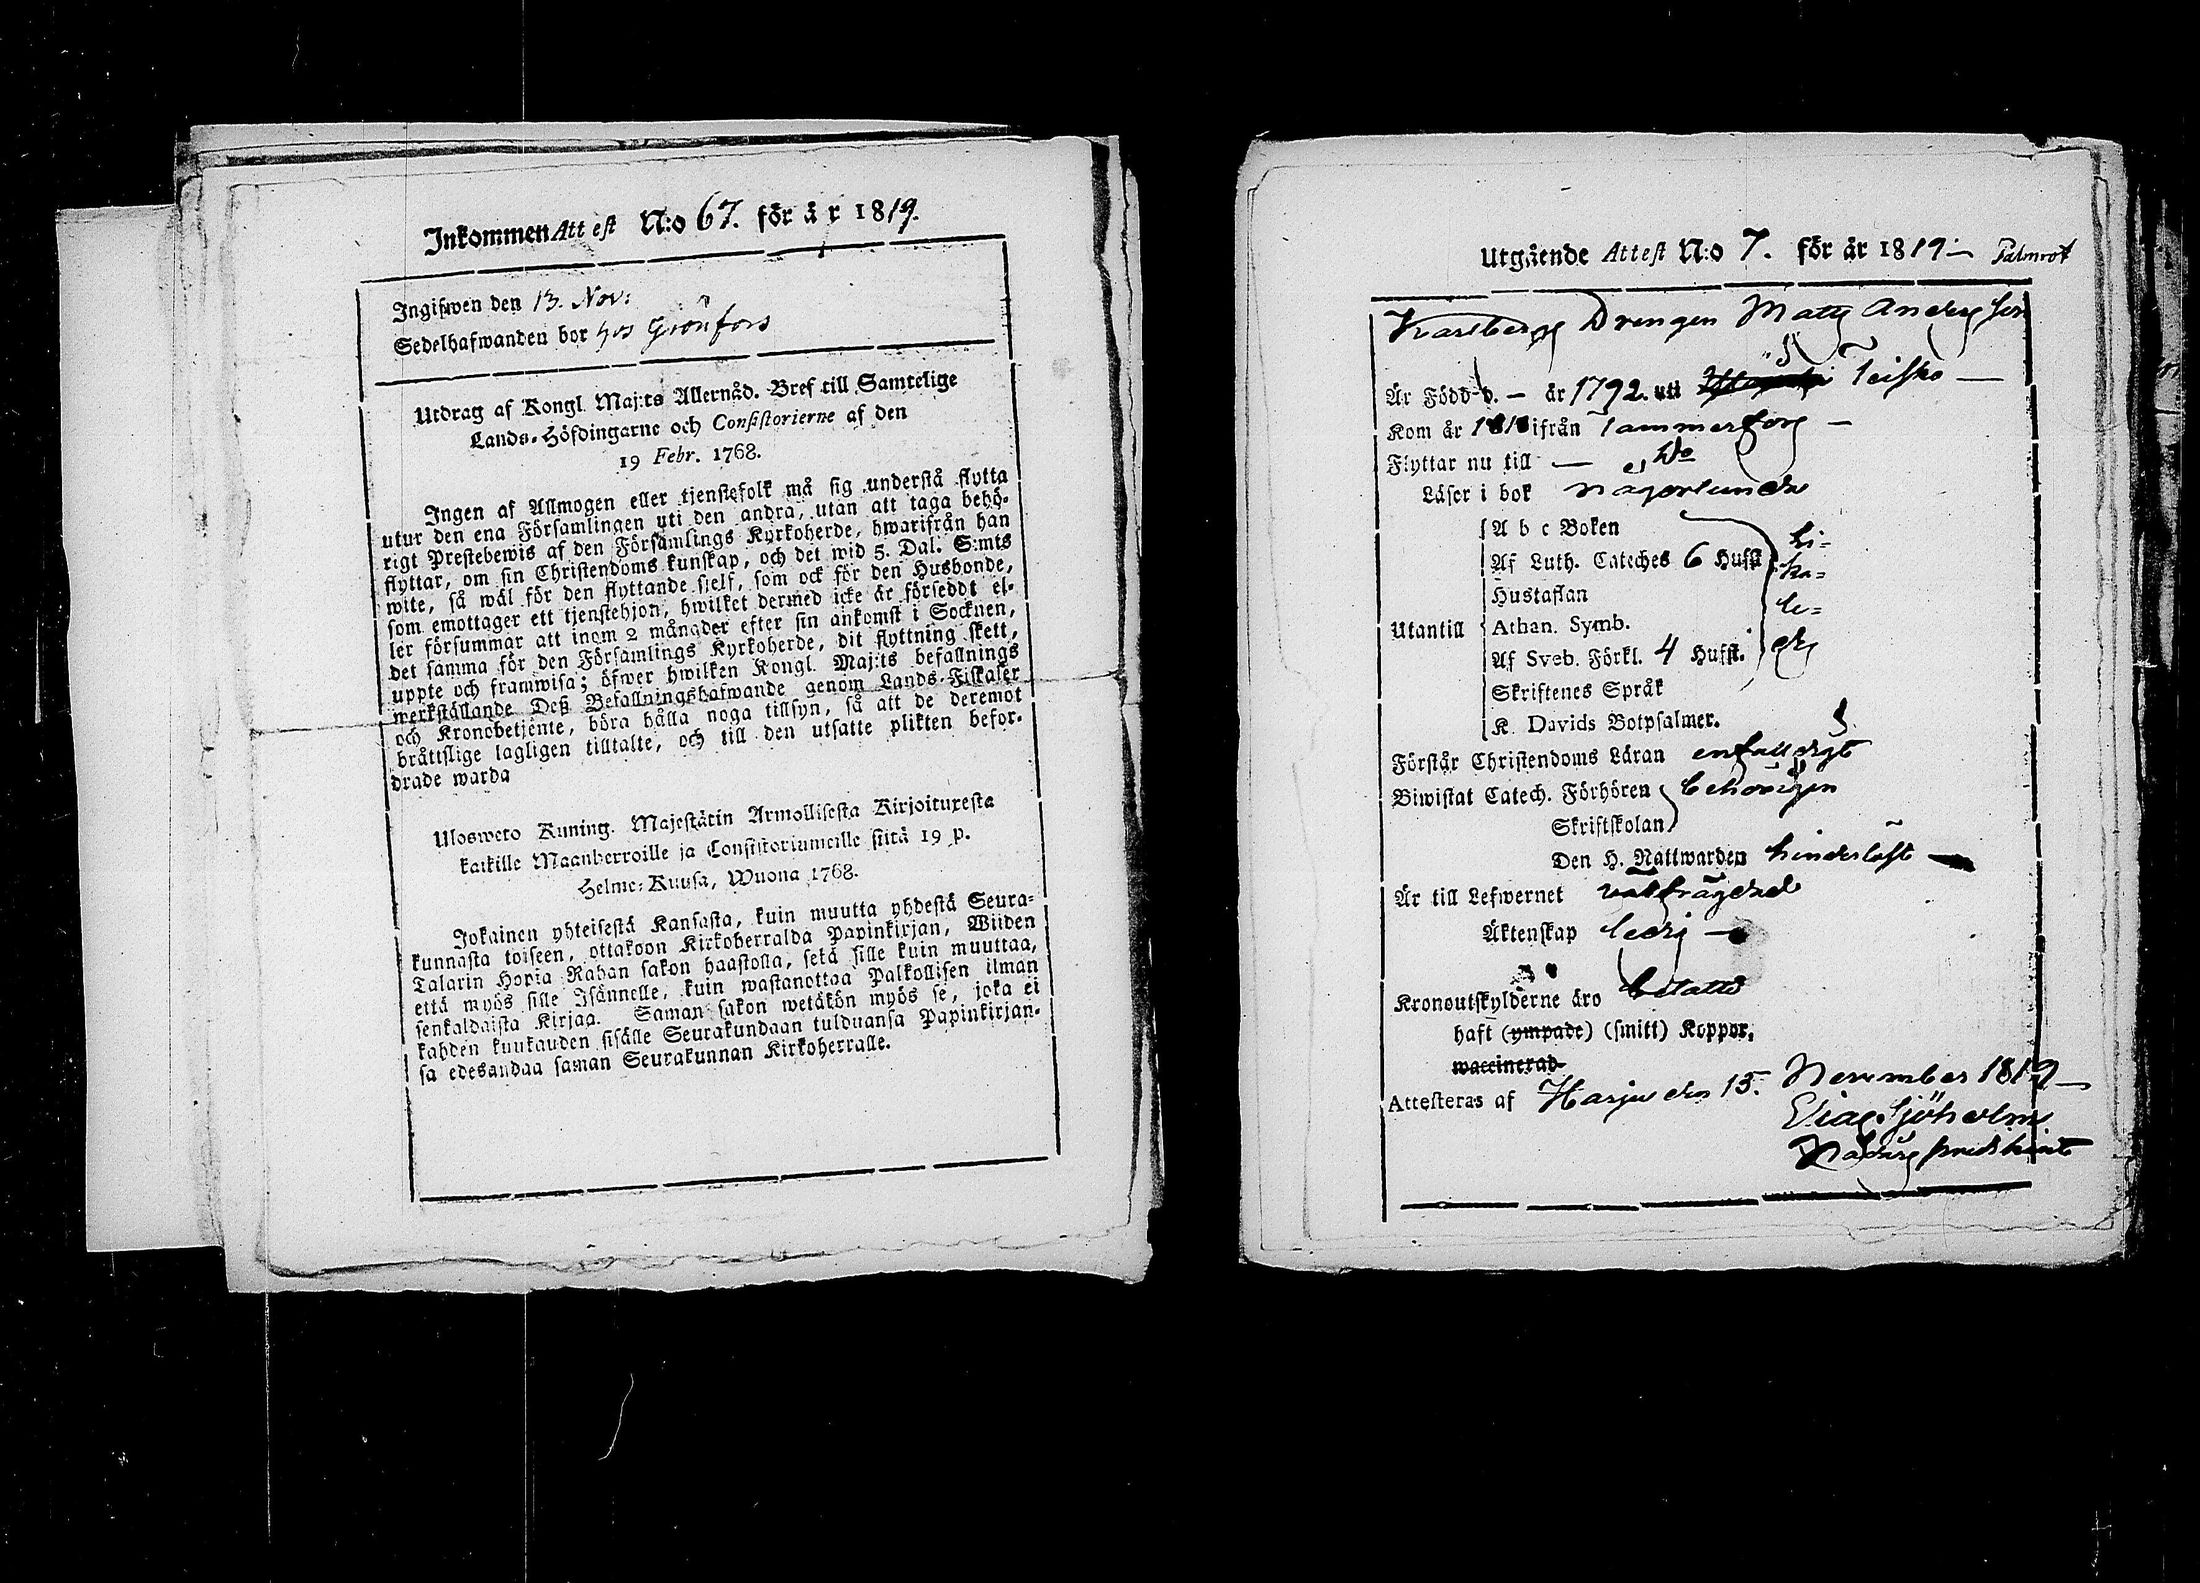 Inkommen Attest N:o 67. för år 1819.
Ingifwen den 13. Nov:
Sedelhafwanden bor hos Grönfors
Utdrag af Kongl. Maj:ts Allernåd. Bref till Samtelige
Lands-Höfdingarne och Consistorierne af den
19 Febr. 1768.
Ingen af Allmogen eller tjenstefolk må sig understå flytta
utur den ena Församlingen uti den andra, utan att taga behö-
rigt Prestebewis af den Församlings Kyrkoherde, hwarifrån han
flyttar, om sin Christendoms kunskap, och det wid 5. Dal. S:mts
wite, så wäl för den flyttande sjelf, som ock för den Husbonde,
som emottager ett tjenstehjon, hwilket dermed icke är försedt el-
ler försummar att inom 2 månader efter sin ankomst i Socknen,
det samma för den Församlings Kyrkoherde, dit flyttning skett,
uppte och framwisa; öfwer hwilken Kongl. Maj:ts befallnings
werkställande Deß Befallningshafwande genom Lands-Fiskaler
och Kronobetjente, böra hålla noga tillsyn, så att de deremot
bråttslige lagligen tilltalte, och till den utsatte plikten befor-
drade warda
Ulosweto Kuning. Majestätin Armollisesta Kirjoituxesta
kaikille Maanherroille ja Consistoriumeille siitä 19 p.
Helme-Kuusa, Wuona 1768.
Jokainen yhteisestä Kansasta, kuin muutta yhdestä Seura-
kunnasta toiseen, ottakoon Kirkoherralda Papinkirjan, Wiiden
Talarin Hopia Rahan sakon haastolla, sekä sille kuin muuttaa,
että myös sille Isännelle, kuin wastanottaa Palkollisen ilman
senkaldaista Kirjaa. Saman sakon wetäkön myös se, joka ei
kahden kuukauden sisälle Seurakundaan tulduansa Papinkirjan-
sa edesandaa saman Seurakunnan Kirkoherralle.
Utgående Attest N:o 7. för år 1819 Palmrot
Karlberg Drengen Matts Andersson
Är Född d. — år 1792. uti Teisko —
Kom år 1818 ifrån Tammerfors —
Flyttar nu till — Do
Läser i bok någorlunda
Utantill
A b c Boken
Af Luth. Cateches 6 Hufst
Hustaflan
Athan. Symb.
Af Sveb. Förkl. 4 Hufst.
Skriftenes Språk
K. Davids Botpsalmer.
li-
ka-
le-
des
Förstår Christendoms Läran enfalldigt
Biwistat Catech. Förhören behörigen
Skriftskolan
Den H. Nattwarden hinderlöst
Är till Lefwernet välfrägdad
Äktenskap ledig —
Kronoutskylderne äro betalte
haft (ympade) (smitt) Koppor,
waccinerad.
Attesteras af Harju den 15. November 1819
Elias Sjöholm